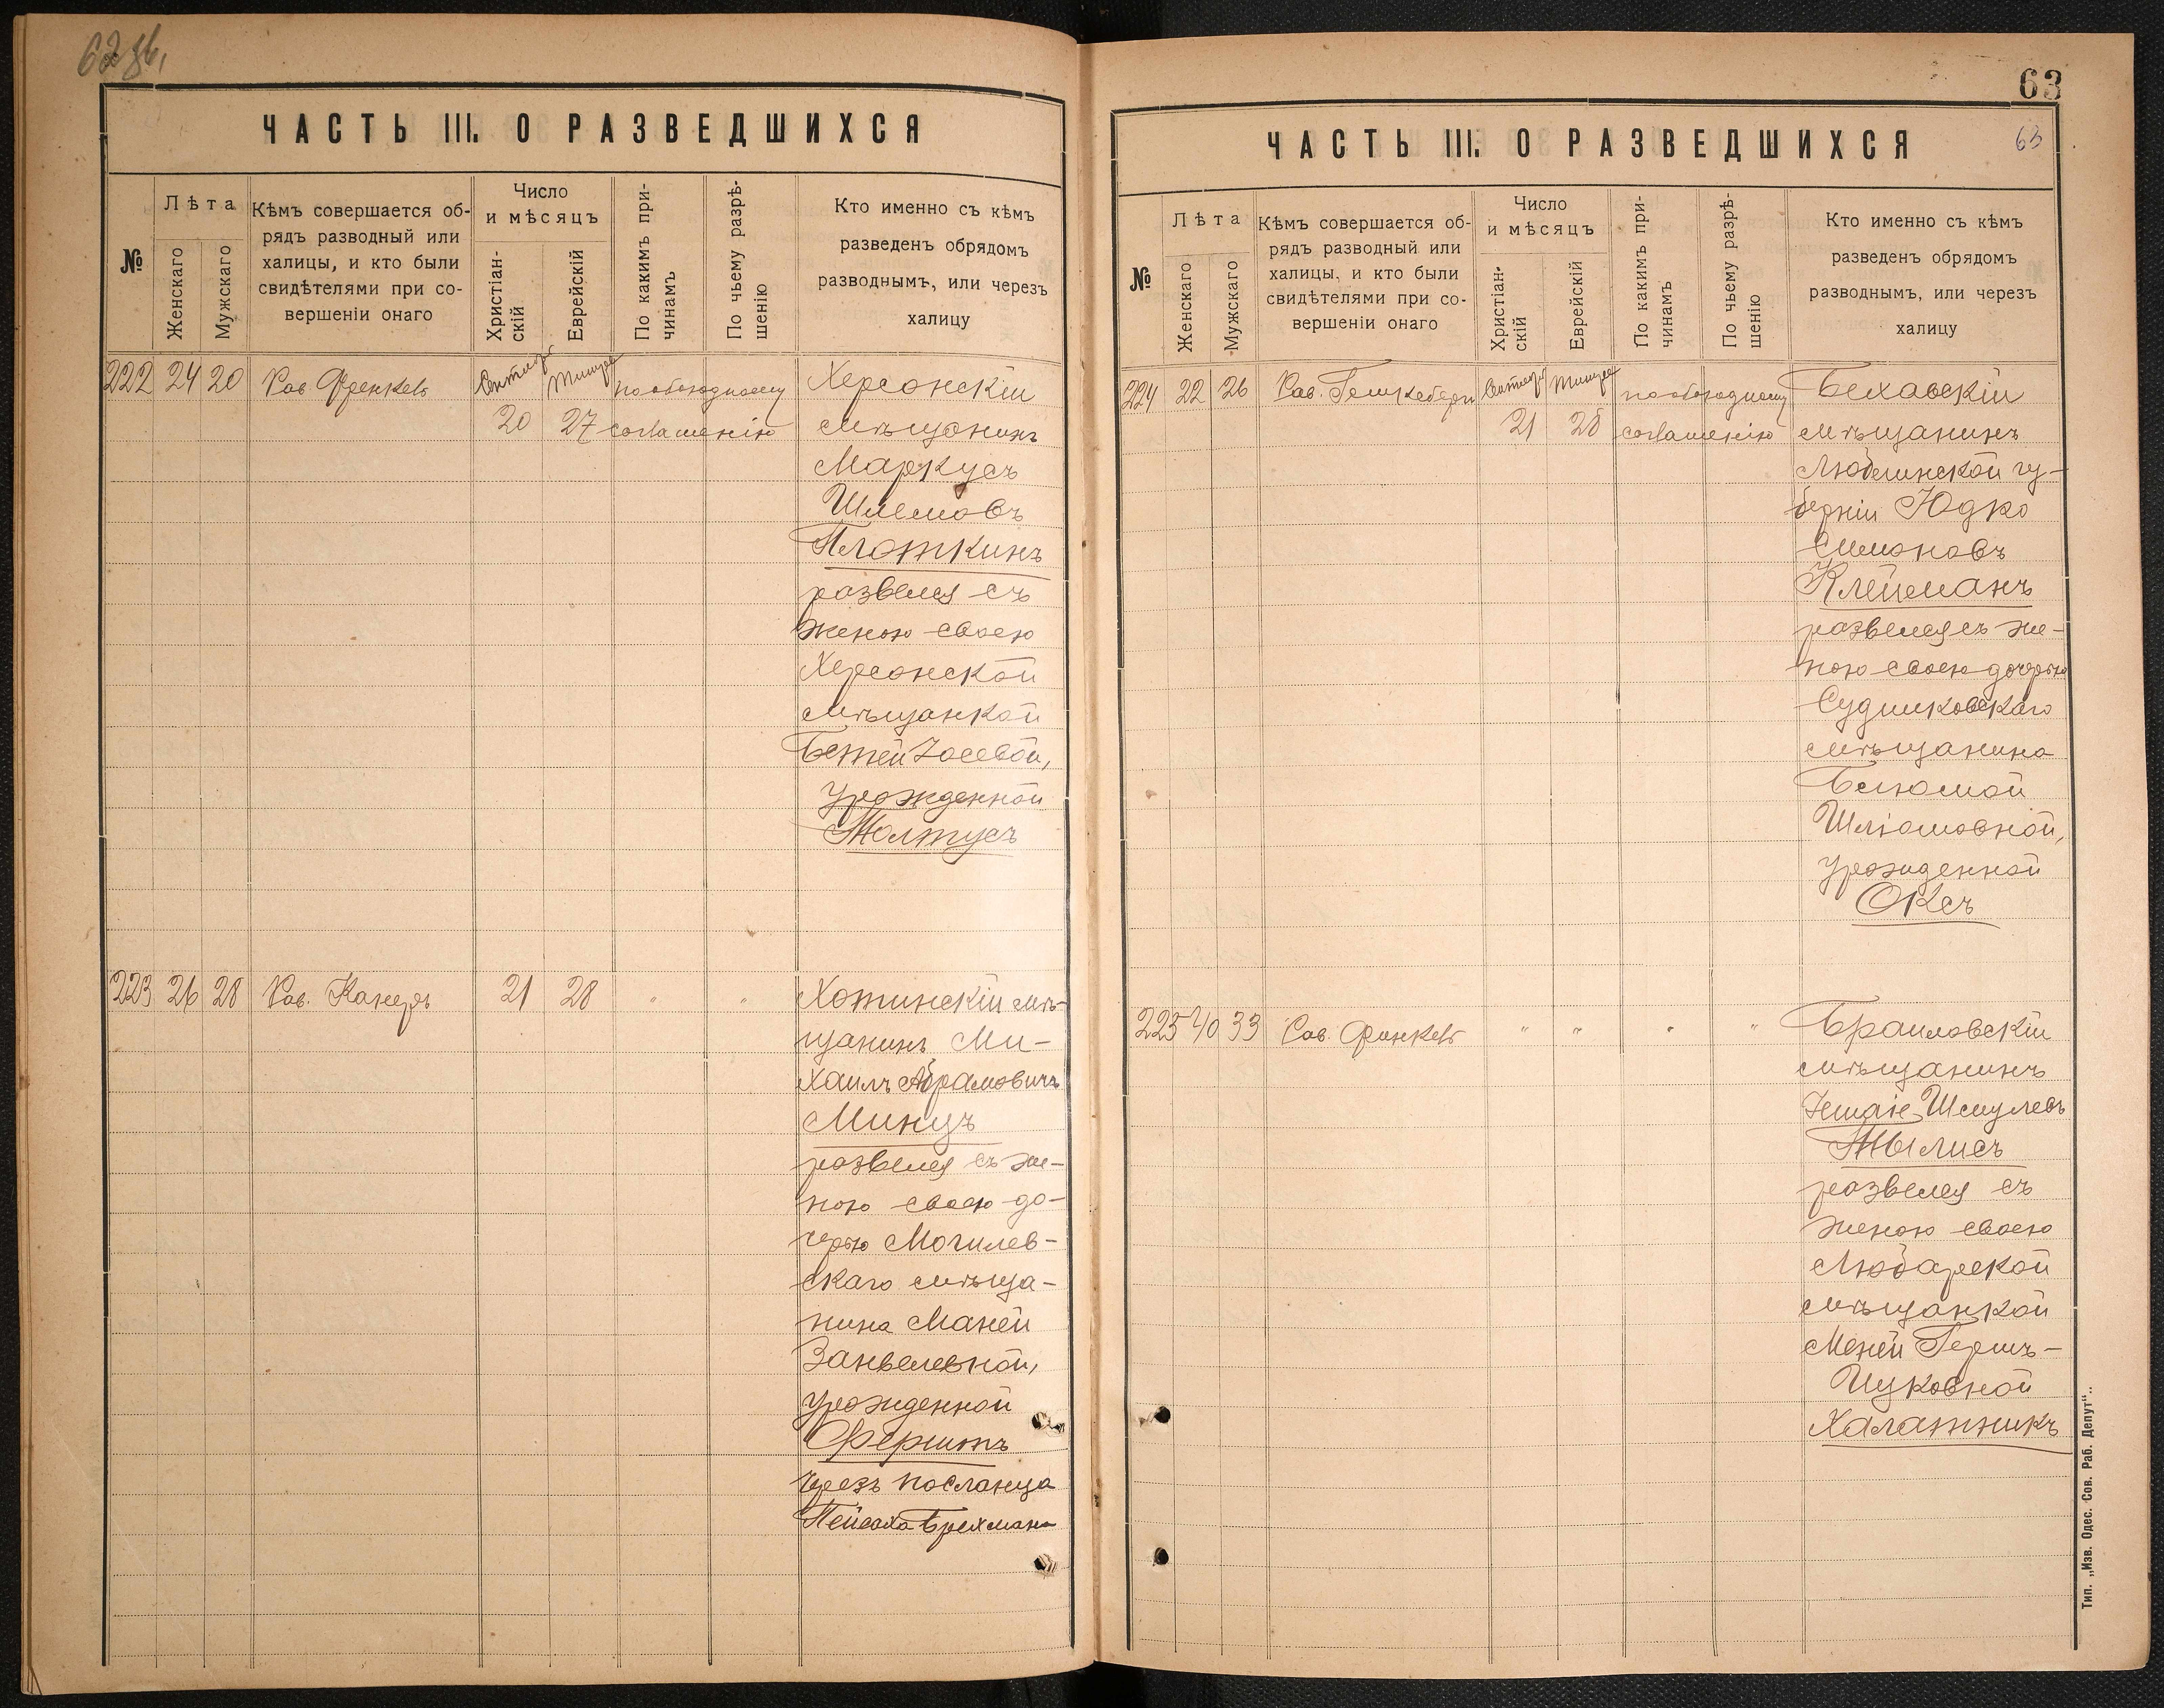 62 об.
ЧАСТЬ III. О РАЗВЕДШИХСЯ
№
Лѣта
Женскаго
Мужскаго
Кѣмъ совершается об-
рядъ разводный или
халицы, и кто были
свидѣтелями при со-
вершеніи онаго
Число
и мѣсяцъ
Христіан-
скій
Еврейскій
По какимъ при-
чинамъ
По чьему разрѣ-
шенію
Кто именно съ кѣмъ
разведенъ обрядомъ
разводнымъ, или черезъ
халицу
222 24 20 Рав Френкель
Сентябр Тишре
20 27
по обоюдному
согласшенію
Херсонскій
мѣщанинъ
Маркусъ
Шлемовъ
Плоткинъ
развелся съ
женою своею
Херсонской
мѣщанкой
Бетей Іосевой,
урожденной
Жолтусъ
223 26 28 Рав. Канеръ 21 28 " "
Хотинскій мѣ-
щанинъ Ми-
хаилъ Абрамовичъ
Минцъ
развелся съ же-
ною своею до-
черью Могилев-
скаго мѣща-
нина Маней
Занвелевной,
урожденной
Ферштъ
черезъ посланца
Пейсаха Брехмана
63
ЧАСТЬ III. О РАЗВЕДШИХСЯ
63
№
Лѣта
Женскаго
Мужскаго
Кѣмъ совершается об-
рядъ разводный или
халицы, и кто были
свидѣтелями при со-
вершеніи онаго
Число
и мѣсяцъ
Христіан-
скій
Еврейскій
По какимъ при-
чинамъ
По чьему разрѣ-
шенію
Кто именно съ кѣмъ
разведенъ обрядомъ
разводнымъ, или черезъ
халицу
224 22 26 Рав.
Сентябр Тишре
21 28
по обоюдному
соглашенію
Бехавскій
мѣщанинъ
Люблинской гу-
берніи Юдко
Симоновъ
Клейманъ
развелся съ же-
ною своею дочерью
Судилковскаго
мѣщанина
Шліомовной,
урожденной
Оксъ
225 40 33 Рав. Финкель " " " "
Браиловскій
мѣщанинъ
Іешаіе Шмулевъ
Тылисъ
развелся съ
женою своею
Любарской
мѣщанкой
Меней Гершъ-
Ицковной
Халатникъ
Тип. „Изв. Одес. Сов. Раб. Депут“.